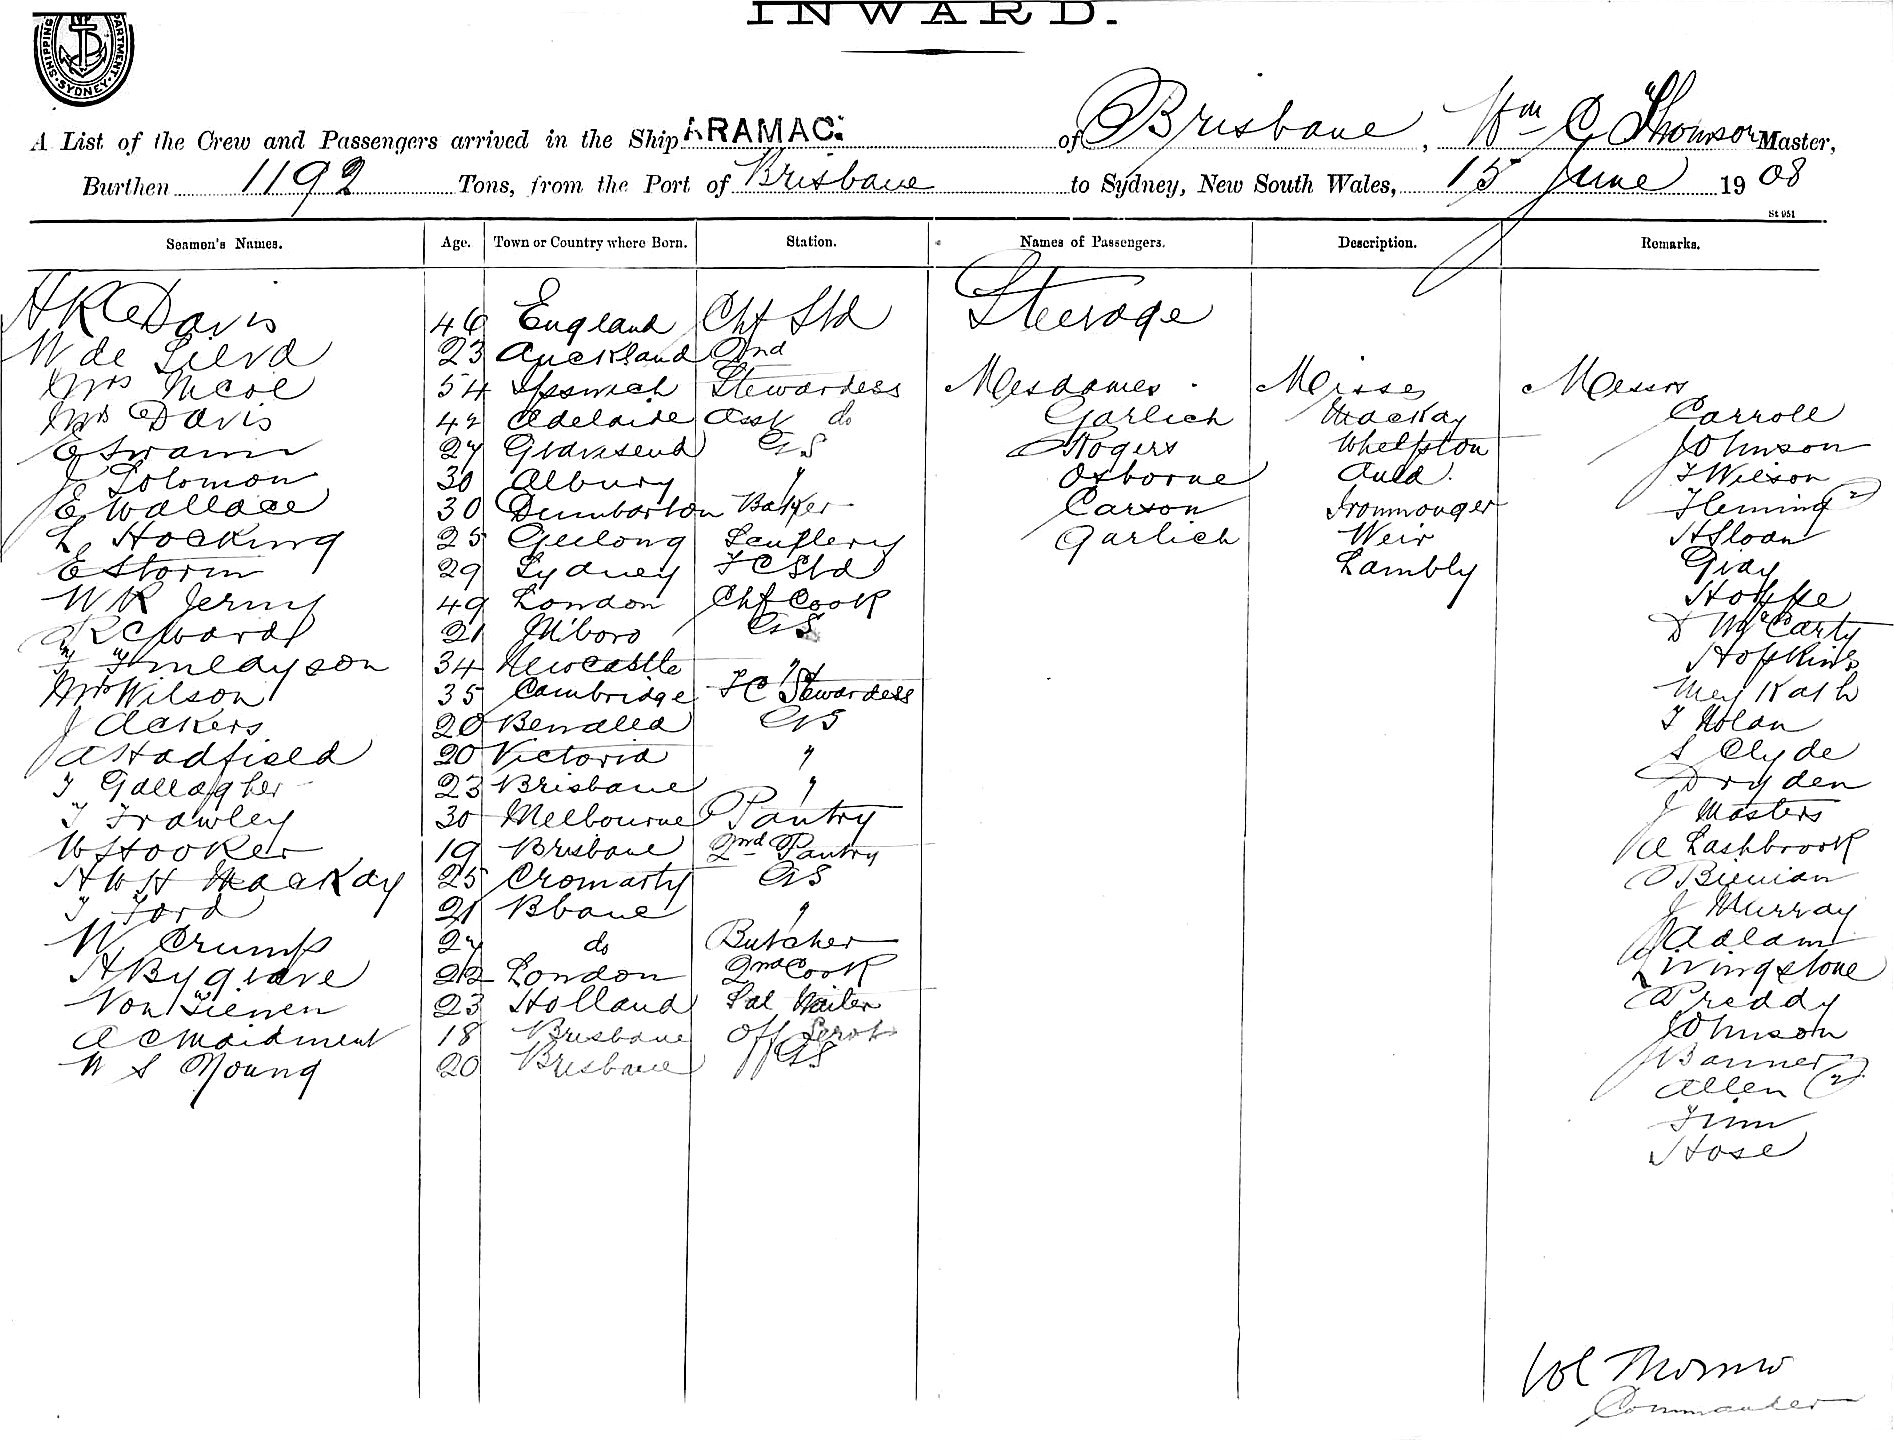 INWARD.
SHIPPING DEPARTMENT SYDNEY
A List of the Crew and Passengers arrived in the Ship ARAMAC. of Brisbane, Wm C Thomson Master,
Burthen 1192 Tons, from the Port of Brisbane to Sydney, New South Wales, 15 June 1908
St 951
Seamen's Names. Age. Town or Country where Born. Station. Names of Passengers. Description. Remarks.
Davis 46 England Chf Std Steerage
W de Silva 23 Auckland 2nd
Mrs Nicol 54 Ipswich Stewardess Mesdames Misses Messrs
Mrs Davis 42 Adelaide Asst do Garlich Mackay Carroll
E Swann 27 Gravesend GS Rogers Whelpton J Johnson
J Solomon 30 Albury " Osborne Auld T Wilson
E Wallace 30 Dumbarton Baker Carson Ironmonger Fleming (2)
L Hocking 25 Geelong Scullery Garlich Weir A Sloan
E Storm 29 Sydney FC Std Lambly Gray
W R Jermy 49 London Chf Cook Hoppe
R C Ward 21 M'boro GS D McCarty
Finlayson 34 Newcastle " Hopkins
Mrs Wilson 35 Cambridge FC Stewardess
J Ackers 20 Benalla GS T Nolan
A Hadfield 20 Victoria " S Clyde
T Gallagher 23 Brisbane " Dryden
T Frawley 30 Melbourne Pantry J Masters
W Hooker 19 Brisbane 2nd Pantry A Lashbrook
A W H Mackay 25 Cromarty GS O'Brienian
T Ford 21 Bbane " J Murray
W Crump 27 do Butcher Adlam
A Bygrave 22 London 2nd Cook Livingstone
Von Tienen 23 Holland Sal Waiter Preddy
A C Maidment 18 Brisbane Off Servt Johnson
W S Young 20 Brisbane GS Banner
Allen (2)
Finn
Hose
Commander